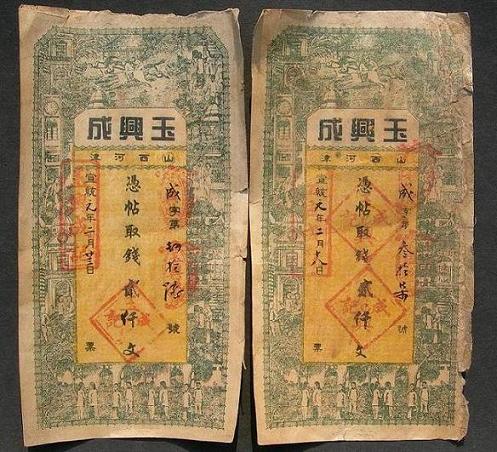 玉興成
山西河津
成字第拾號
憑帖取錢貳仟文
宣統元年二月日
票
成記
玉興成
山西河津
成字第叁拾號
憑帖取錢貳仟文
宣統元年二月十八日
票
成記